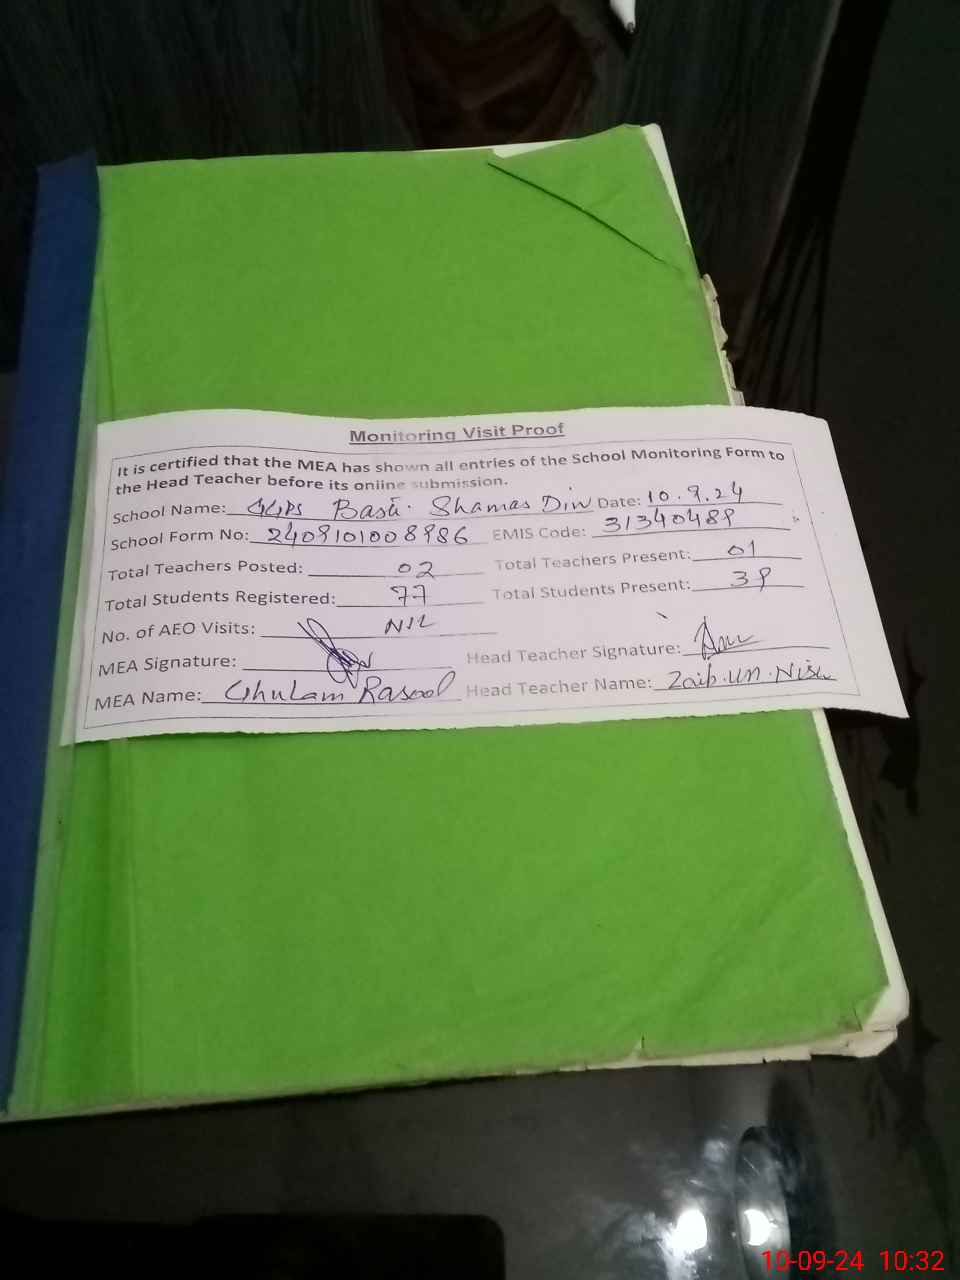 Monitoring Visit Proof
It is certified that the MEA has shown all entries of the School Monitoring Form to
the Head Teacher before its online submission.
School Name: GGPS Basti. Shamas Din Date: 10.9.24
School Form No: 2409101008986 EMIS Code: 31340489
Total Teachers Posted: 02 Total Teachers Present: 01
Total Students Registered: 77 Total Students Present: 39
No. of AEO Visits: NIL
MEA Signature: Head Teacher Signature:
MEA Name: Ghulam Rasool Head Teacher Name: Zaib.un.Nisa
10-09-24 10:32